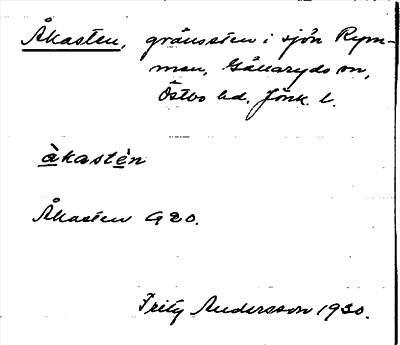 Åkasten, gränssten i sjön Rym-
men, Gållaryds sn,
Östbo hd. Jönk. l.
åkastèn
Åkasten G20.
Fritz Andersson 1930.